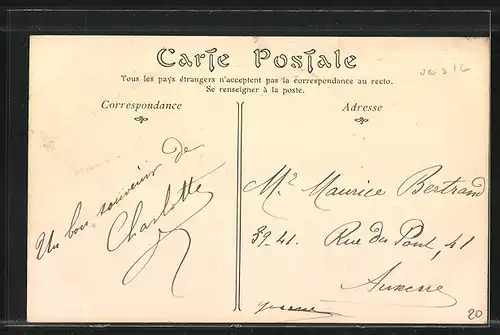 Carte Postale
Tous les pays étrangers n'acceptent pas la correspondance au recto.
Se renseigner à la poste.
Correspondance
Un bon souvenir de
Charlotte
Adresse
Mr Maurice Bertrand
39-41. Rue du Pont, 41
Auxerre
Yonne
20